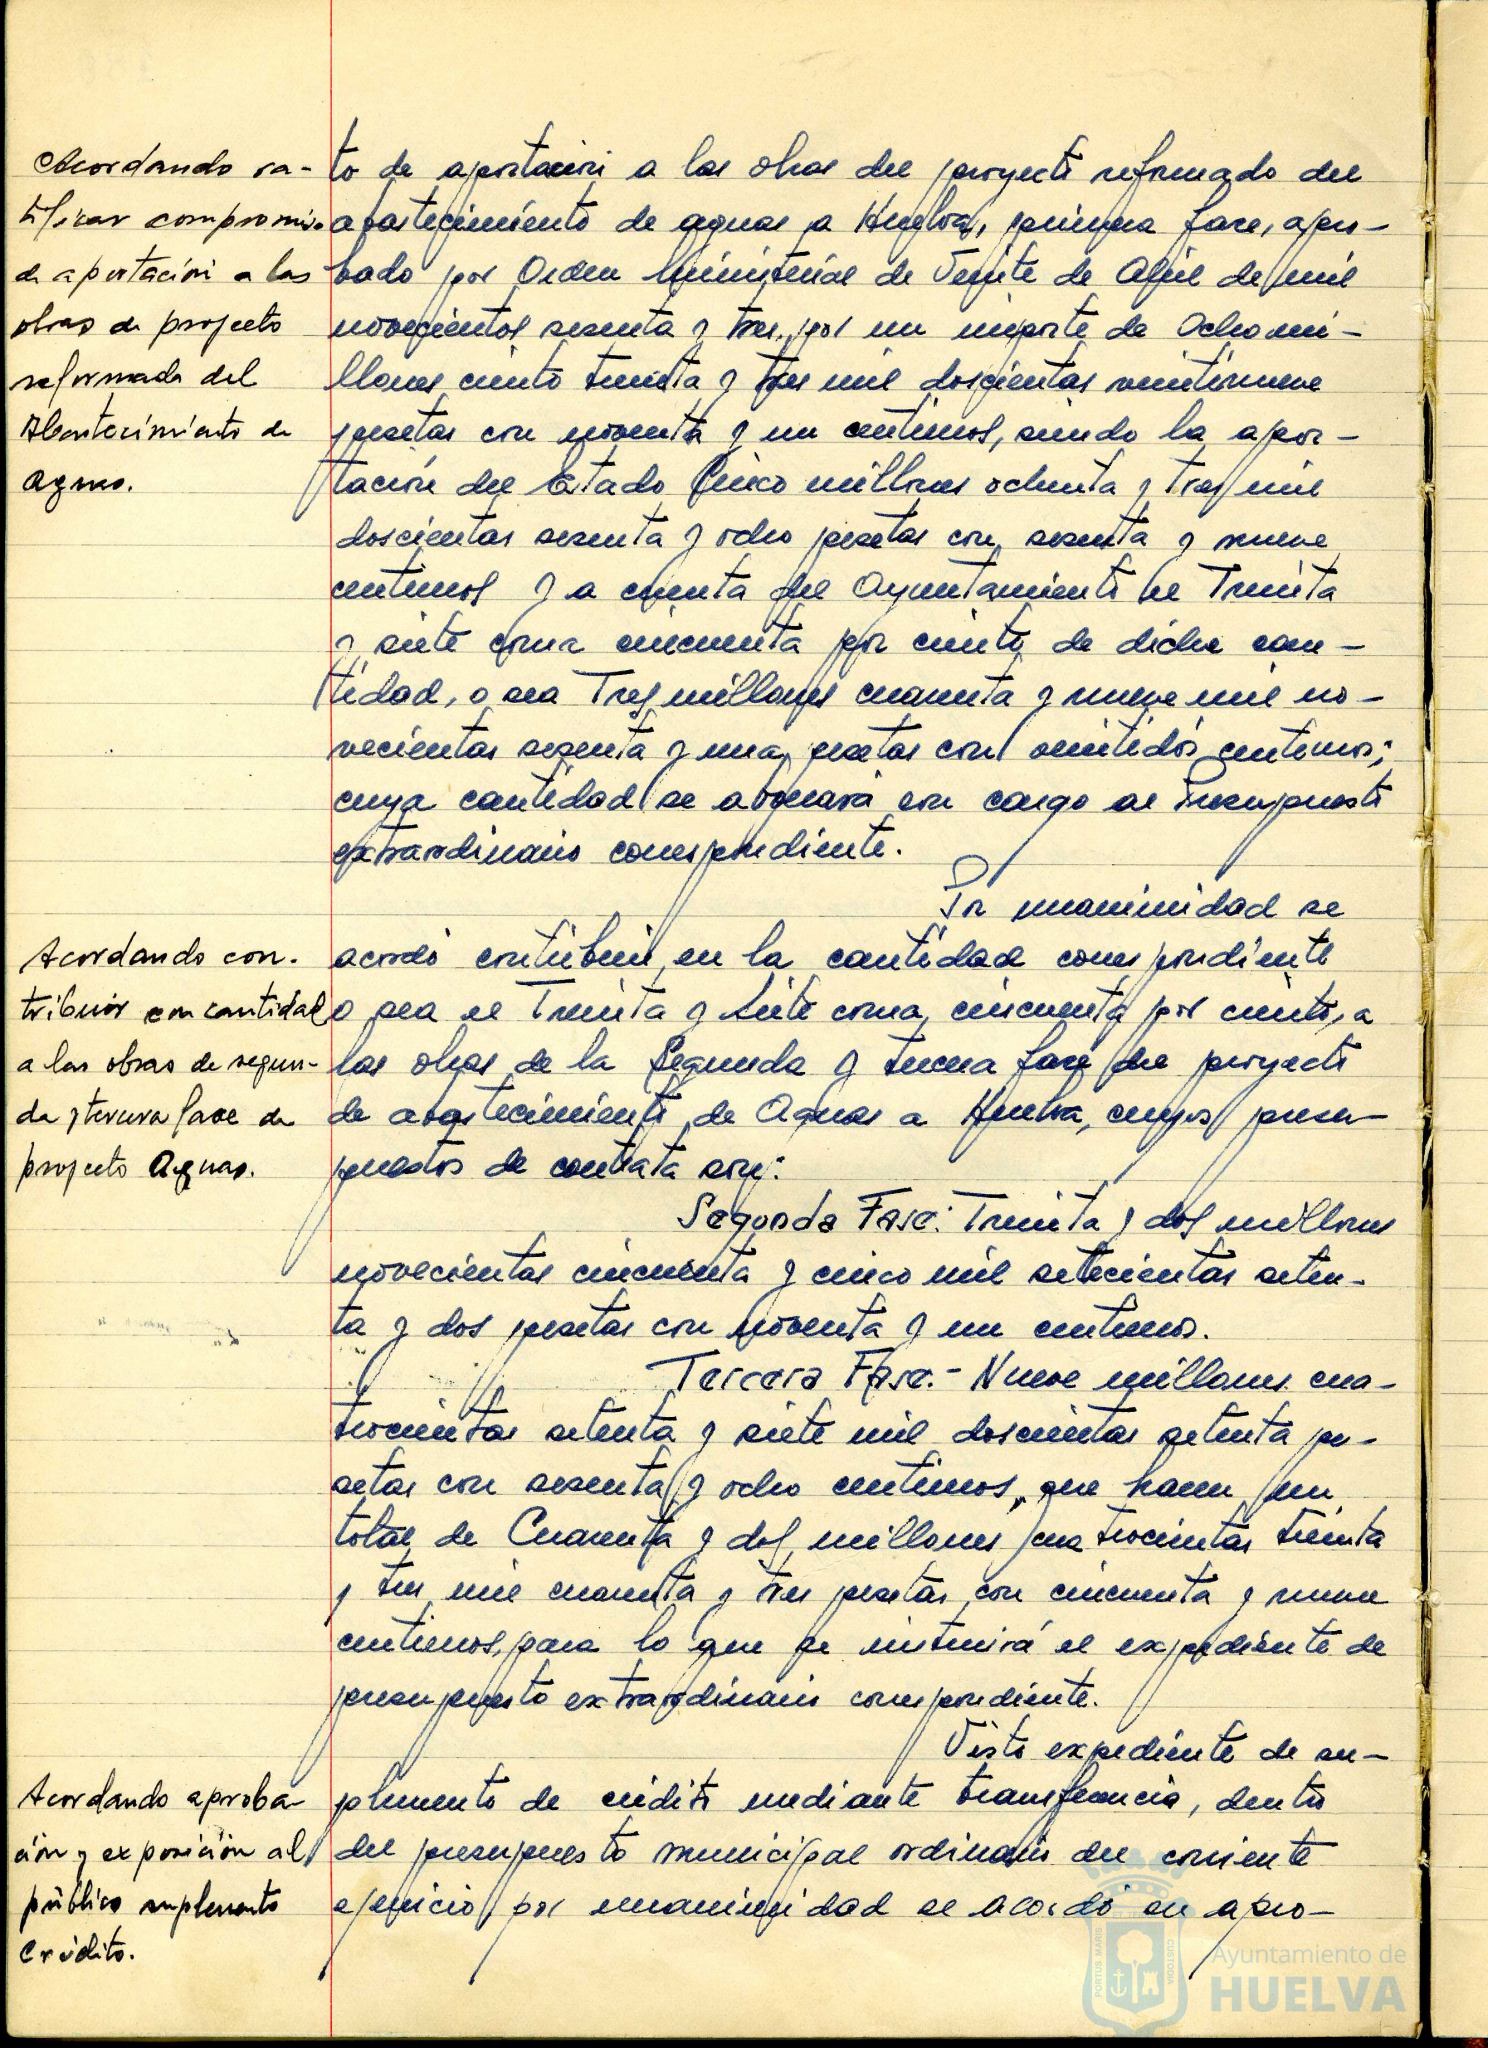 Acordando ra-
tificar compromiso
de aportación a las
obras de proyecto
reformado del
Abastecimiento de
aguas.
to de aportación a las obras del proyecto reformado del
abastecimiento de aguas a Huelva, primera fase, apro-
bado por Orden Ministerial de Veinte de Abril de mil
novecientos sesenta y tres, por un importe de Ocho mi-
llones ciento treinta y tres mil doscientas veintinueve
pesetas con noventa y un centimos, siendo la apor-
tación del Estado Cinco millones ochenta y tres mil
doscientas sesenta y ocho pesetas con sesenta y nueve
centimos y a cuenta del Ayuntamiento el Treinta
y siete coma cincuenta por ciento de dicha can-
tidad, o sea Tres millones cuarenta y nueve mil no-
vecientas sesenta y una pesetas con veintidós centimos;
cuya cantidad se abonará con cargo al Presupuesto
extraordinario correspondiente.
Acordando con-
tribuir con cantidad
a las obras de segun-
da y tercera fase de
proyecto Aguas.
Por unanimidad se
acordó contribuir en la cantidad correspondiente
o sea el Treinta y Siete coma cincuenta por ciento, a
las obras de la Segunda y tercera fase del proyecto
de abastecimiento de Aguas a Huelva, cuyos presu-
puestos de contrata son:
Segunda Fase: Treinta y dos millones
novecientas cincuenta y cinco mil setecientas seten-
ta y dos pesetas con noventa y un centimos.
Tercera Fase.- Nueve millones cua-
trocientas setenta y siete mil doscientas setenta pe-
setas con sesenta y ocho centimos, que hacen un
total de Cuarenta y dos millones cuatrocientas treinta
y tres mil cuarenta y tres pesetas con cincuenta y nueve
centimos, para lo que se instruirá el expediente de
presupuesto extraordinario correspondiente.
Acordando aproba-
ción y exposición al
público suplemento
Crédito.
Visto expediente de su-
plemento de crédito mediante transferencia, dentro
del presupuesto municipal ordinario del corriente
ejercicio por unanimidad se acordó su apro-
PORTUS MARIS
CUSTODIA
Ayuntamiento de
HUELVA